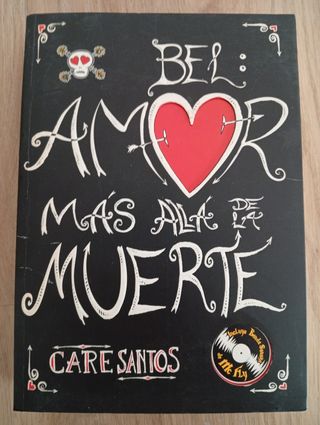 BEL:
AMOR
MÁS ALLÁ DE LA
MUERTE
CARE SANTOS
Incluye Banda Sonora
de Mc Fly